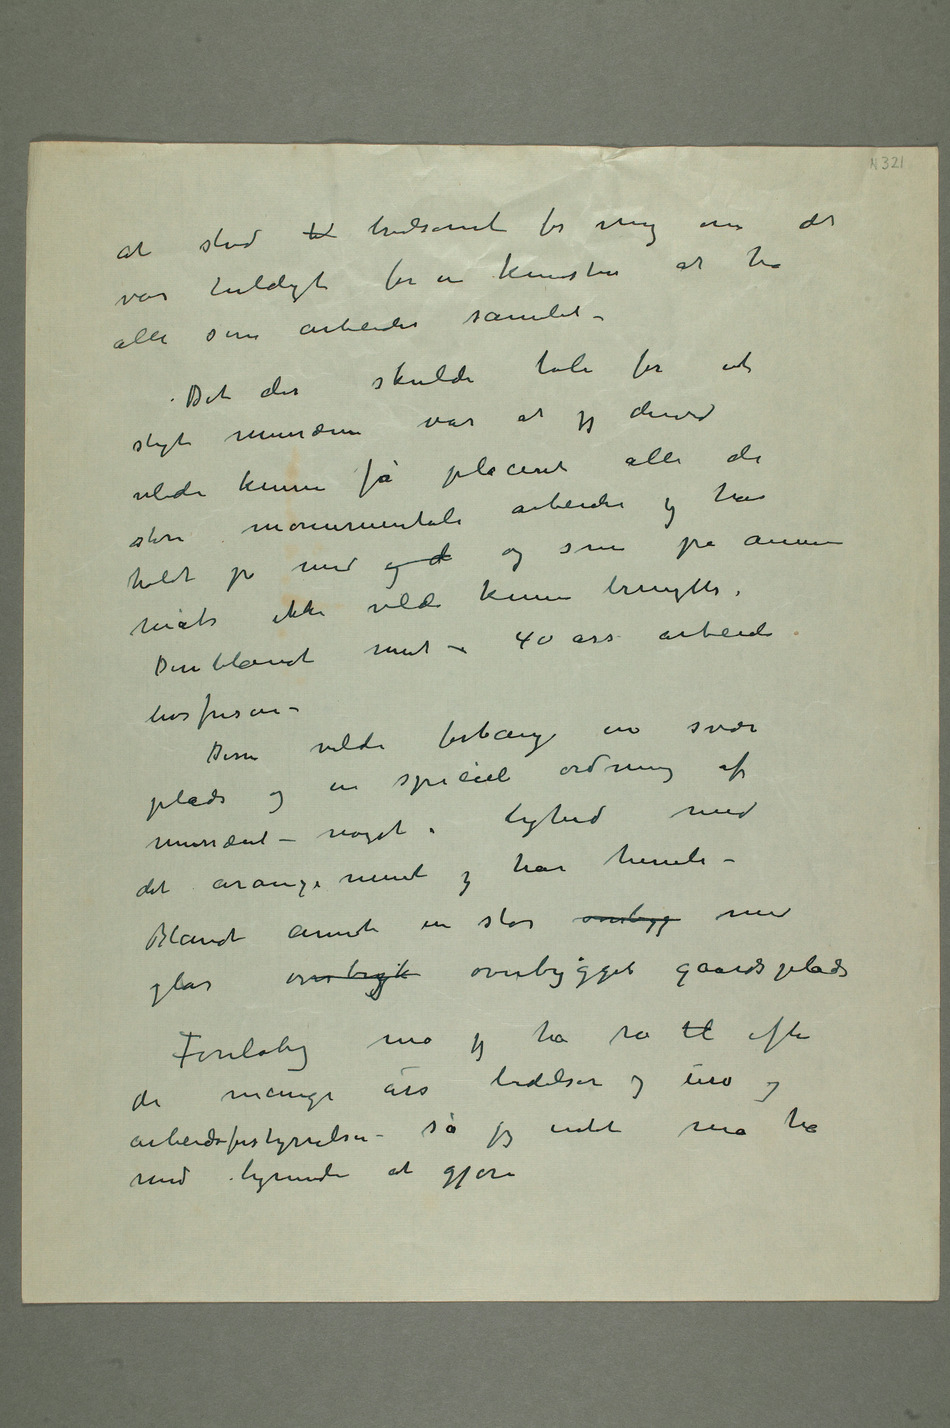 N 321
at stod til tvilsomt for mig om det
var heldigt for en kunstner at ha
alle sine arbeider samlet –
Det der skulde tale for et
sligt musæum var at jeg derved
vilde kunne få placeret alle de
store monumentale arbeider jeg har
holdt på med og d og som på annen
måte ikke vilde kunne benyttes.
Deriblandt mit – 40 års arbeide
livsfrisen –
Denne vilde forlange en svær
plads og en speciel ordning af
musæet – noget i lighed med
det arangement jeg har hernede –
Blandt annet en stor overbygg med
glas overbygk overbygget gaardsplads
Foreløbig må jeg ha ro til efter
de mange års lidelser og uro og
arbeidsforstyrrelser – så jeg indtet må ha
med lignende at gjøre